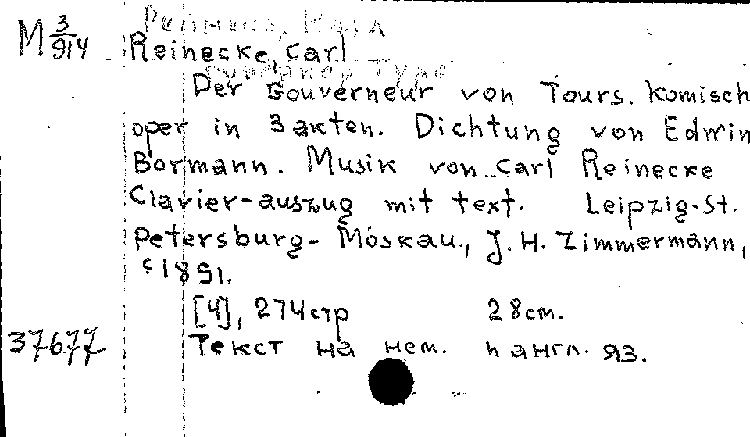 М 3/914
Рейнеке, Карл
Reinecke, Carl
Губернер Туре
Der Gouverneur von Tours. Komisch
oper in 3 akten. Dichtung von Edwin
Bormann. Musik von Carl Reinecke
Clavier-auszug mit text. Leipzig-St.
Petersburg-Moskau., J. H. Zimmermann,
c1891.
[4], 274 стр 28 cm.
37677 Текст на нем. и англ. яз.